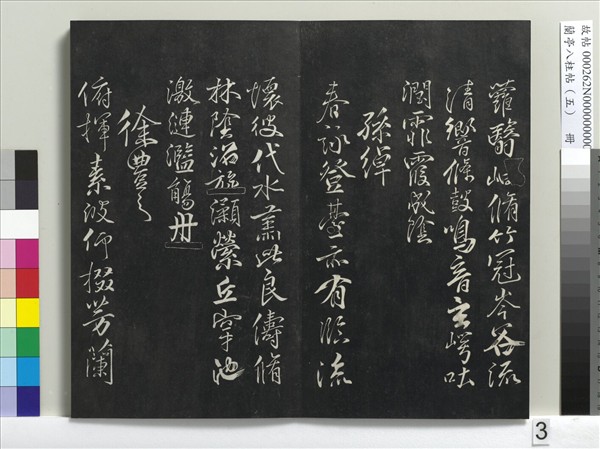 蘿翳岫脩竹冠岑谷流
清響條鼓鳴音玄崿吐
潤霏霞成陰
孫綽
春詠登臺亦有臨流
懷彼伐木肅此良儔脩
林陰沼旋瀨縈丘穿池
激漣濫觴舟
徐豐之
俯揮素波仰掇芳蘭
故帖 000262N000000000
蘭亭八柱帖（五） 冊
3